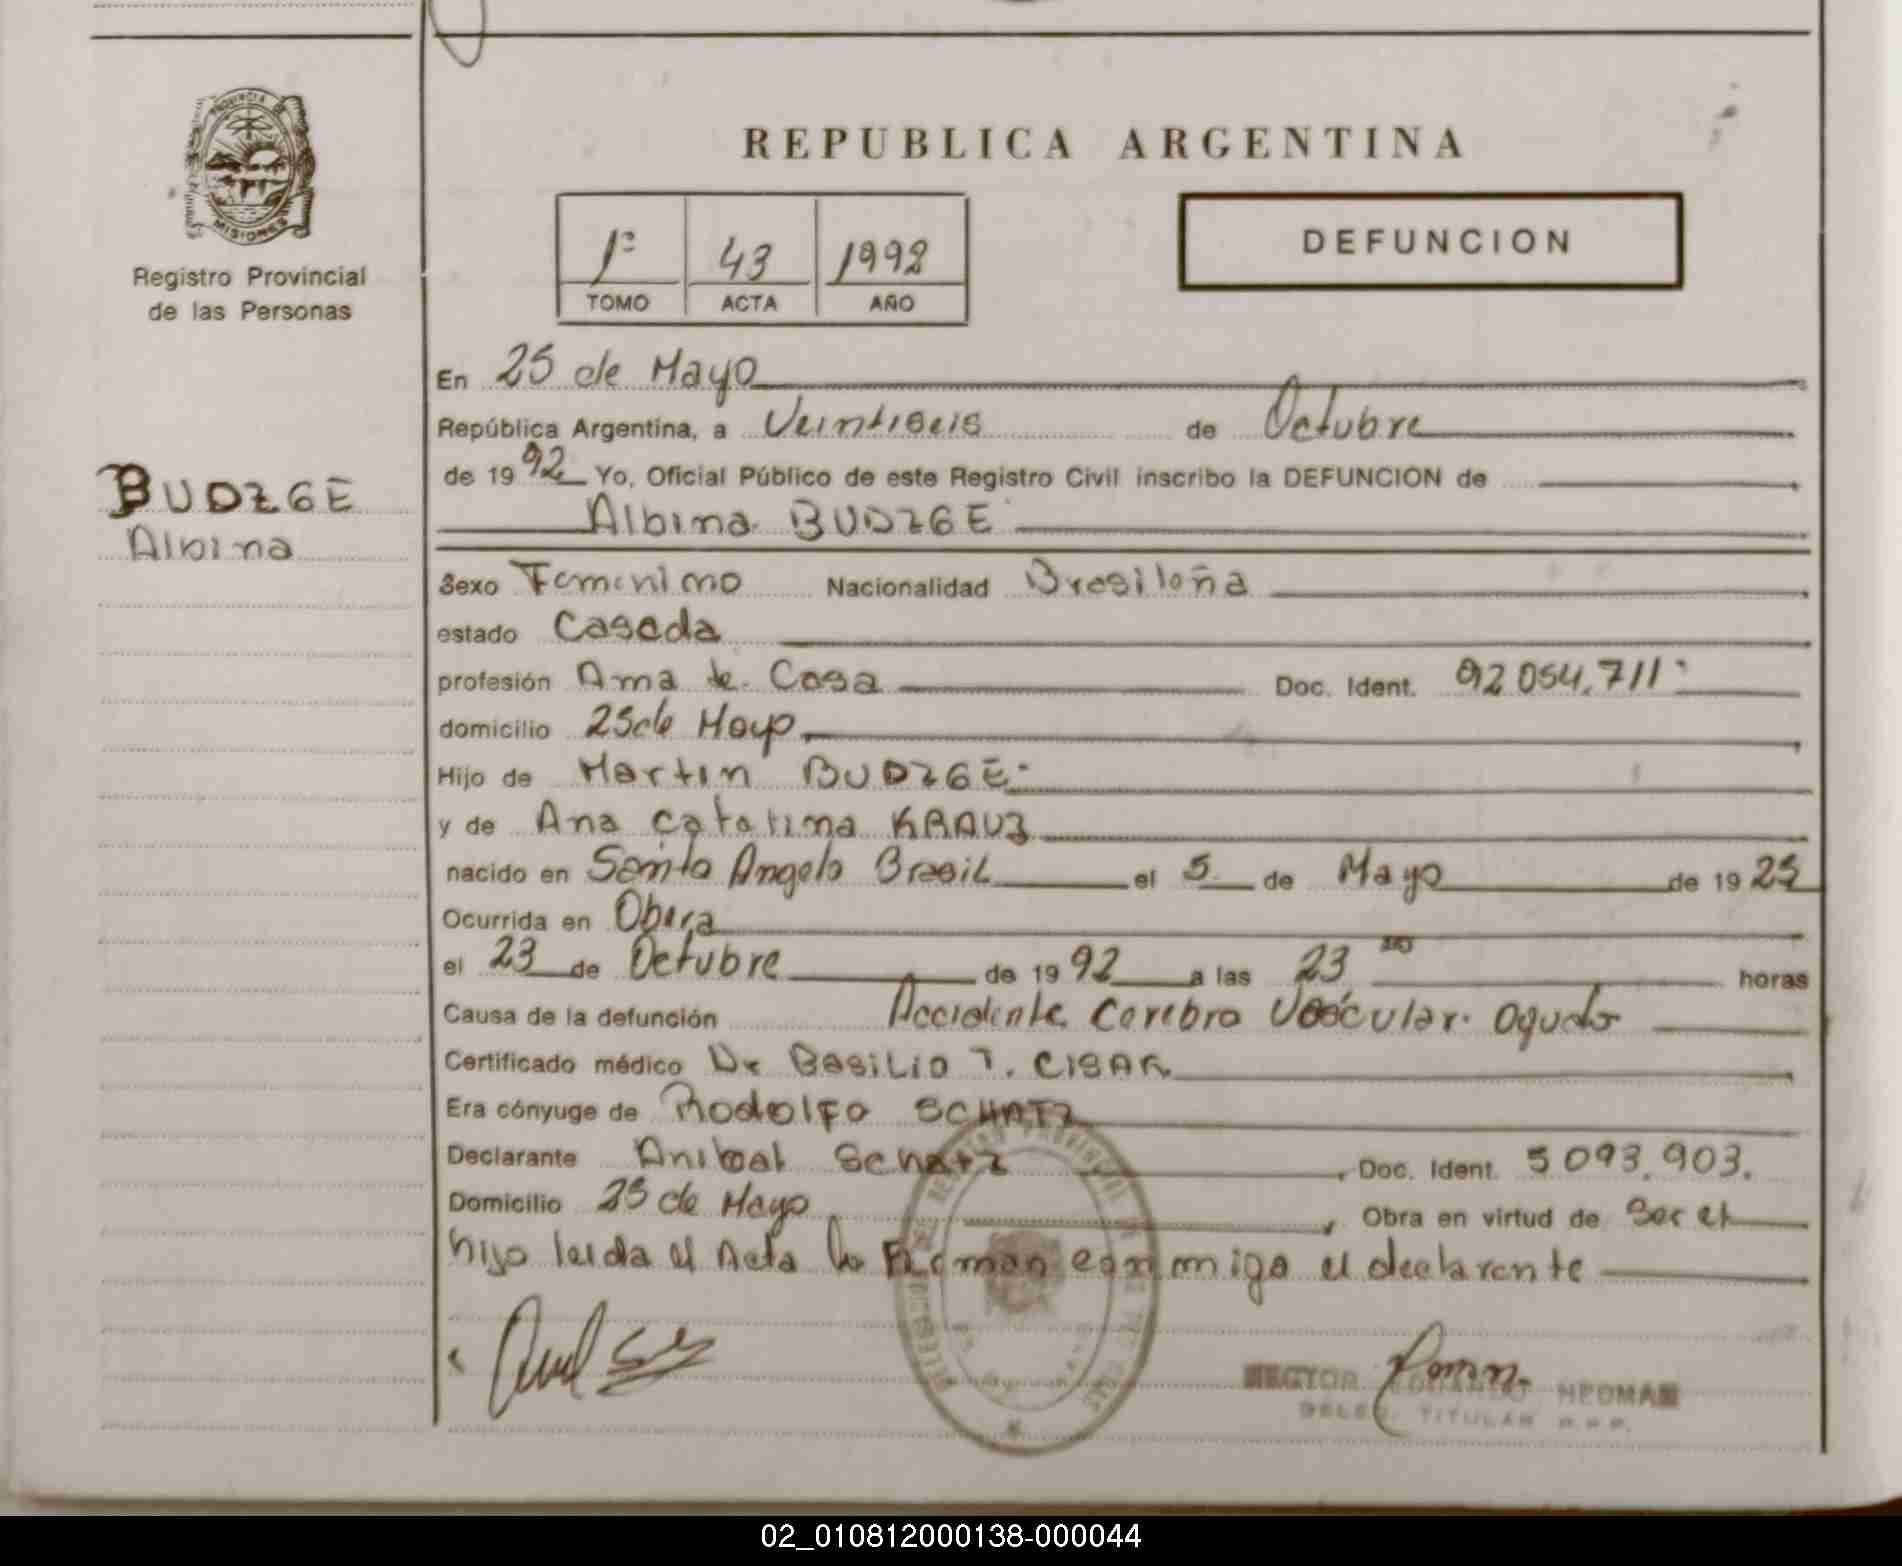 REPUBLICA ARGENTINA
PROVINCIA DE
MISIONES
Registro Provincial
de las Personas
1º 43 1992
TOMO ACTA AÑO
DEFUNCION
BUDZGE
Albina
En 25 de Mayo
República Argentina, a Veintiseis de Octubre
de 1992 Yo, Oficial Público de este Registro Civil inscribo la DEFUNCION de
Albina BUDZGE
Sexo Femenino Nacionalidad Brasileña
estado Casada
profesión Ama de Casa Doc. Ident. 92 054.711
domicilio 25 de Mayo
Hijo de Martin BUDZGE
y de Ana Catalina KRAUZ
nacido en Santo Angelo Brasil el 5 de Mayo de 1925
Ocurrida en Obera
el 23 de Octubre de 1992 a las 23 horas
Causa de la defunción Accidente Cerebro Vascular agudo
Certificado médico Dr Basilio T. CISAR
Era cónyuge de Rodolfo SCHATZ
Declarante Anibal Schatz Doc. Ident. 5093.903.
Domicilio 25 de Mayo Obra en virtud de Ser el
hijo leida el Acta la Firman conmigo el declarante
HECTOR NEUMAN
DELEG. TITULAR R.P.P.
02_010812000138-000044